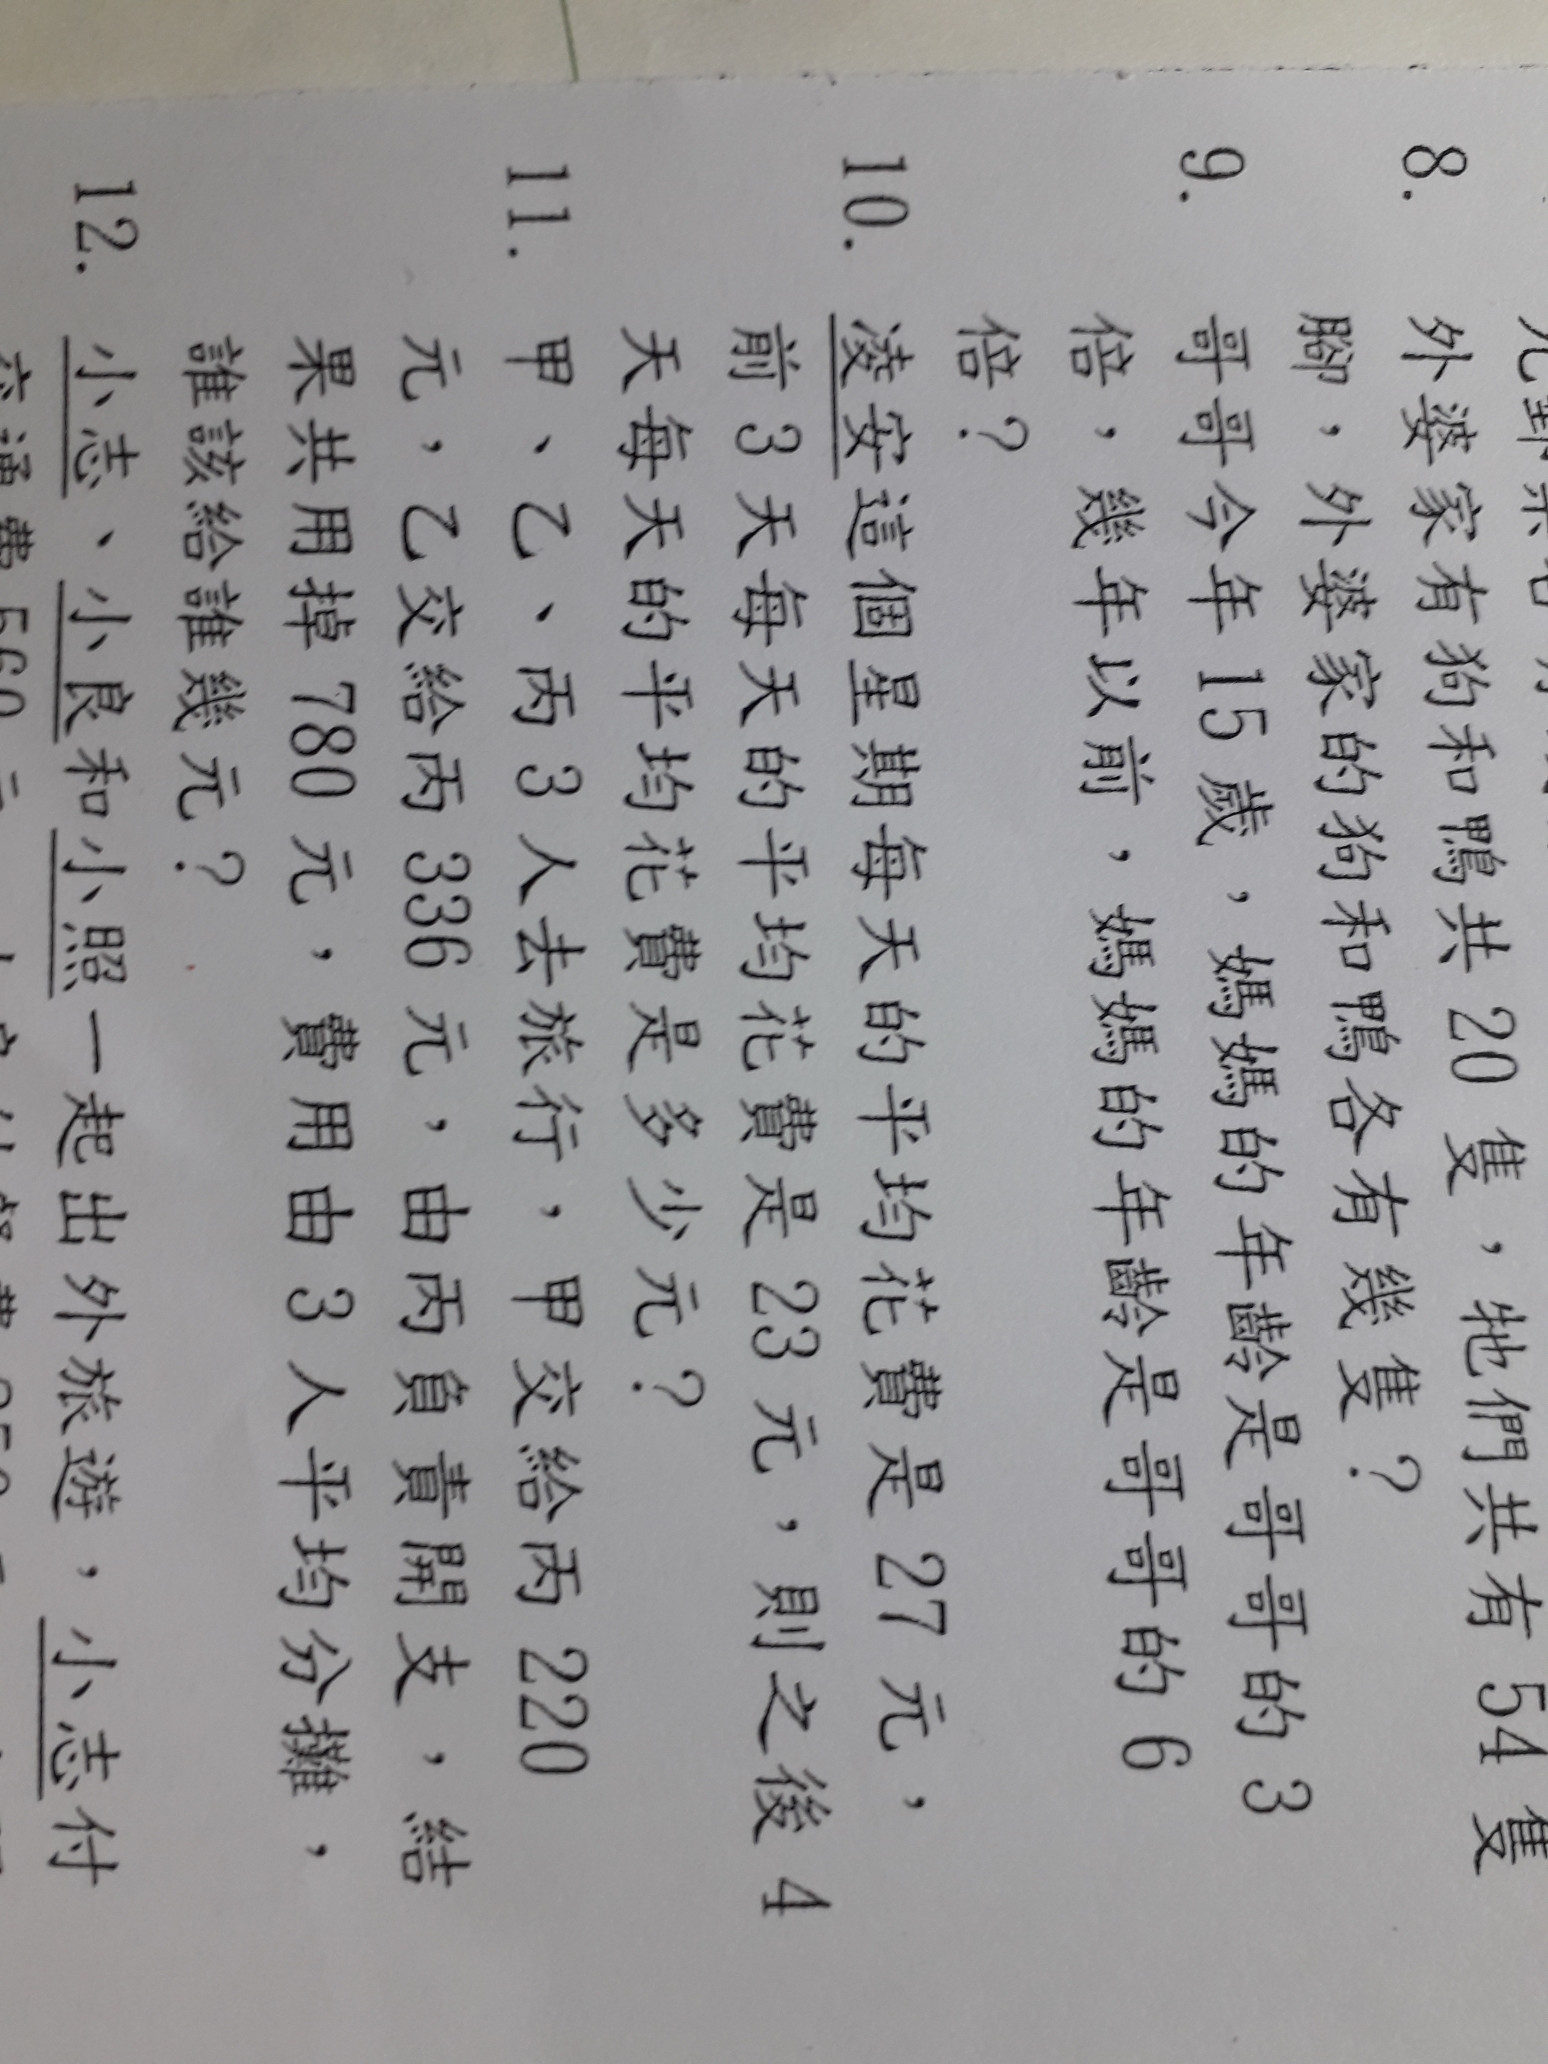 8. 外婆家有狗和鴨共 20 隻，牠們共有 54 隻
腳，外婆家的狗和鴨各有幾隻？
9. 哥哥今年 15 歲，媽媽的年齡是哥哥的 3
倍，幾年以前，媽媽的年齡是哥哥的 6
倍？
10. 淩安這個星期每天的平均花費是 27 元，
前 3 天每天的平均花費是 23 元，則之後 4
天每天的平均花費是多少元？
11. 甲、乙、丙 3 人去旅行，甲交給丙 220
元，乙交給丙 336 元，由丙負責開支，結
果共用掉 780 元，費用由 3 人平均分攤，
誰該給誰幾元？
12. 小志、小良和小照一起出外旅遊，小志付
交通費 560 元